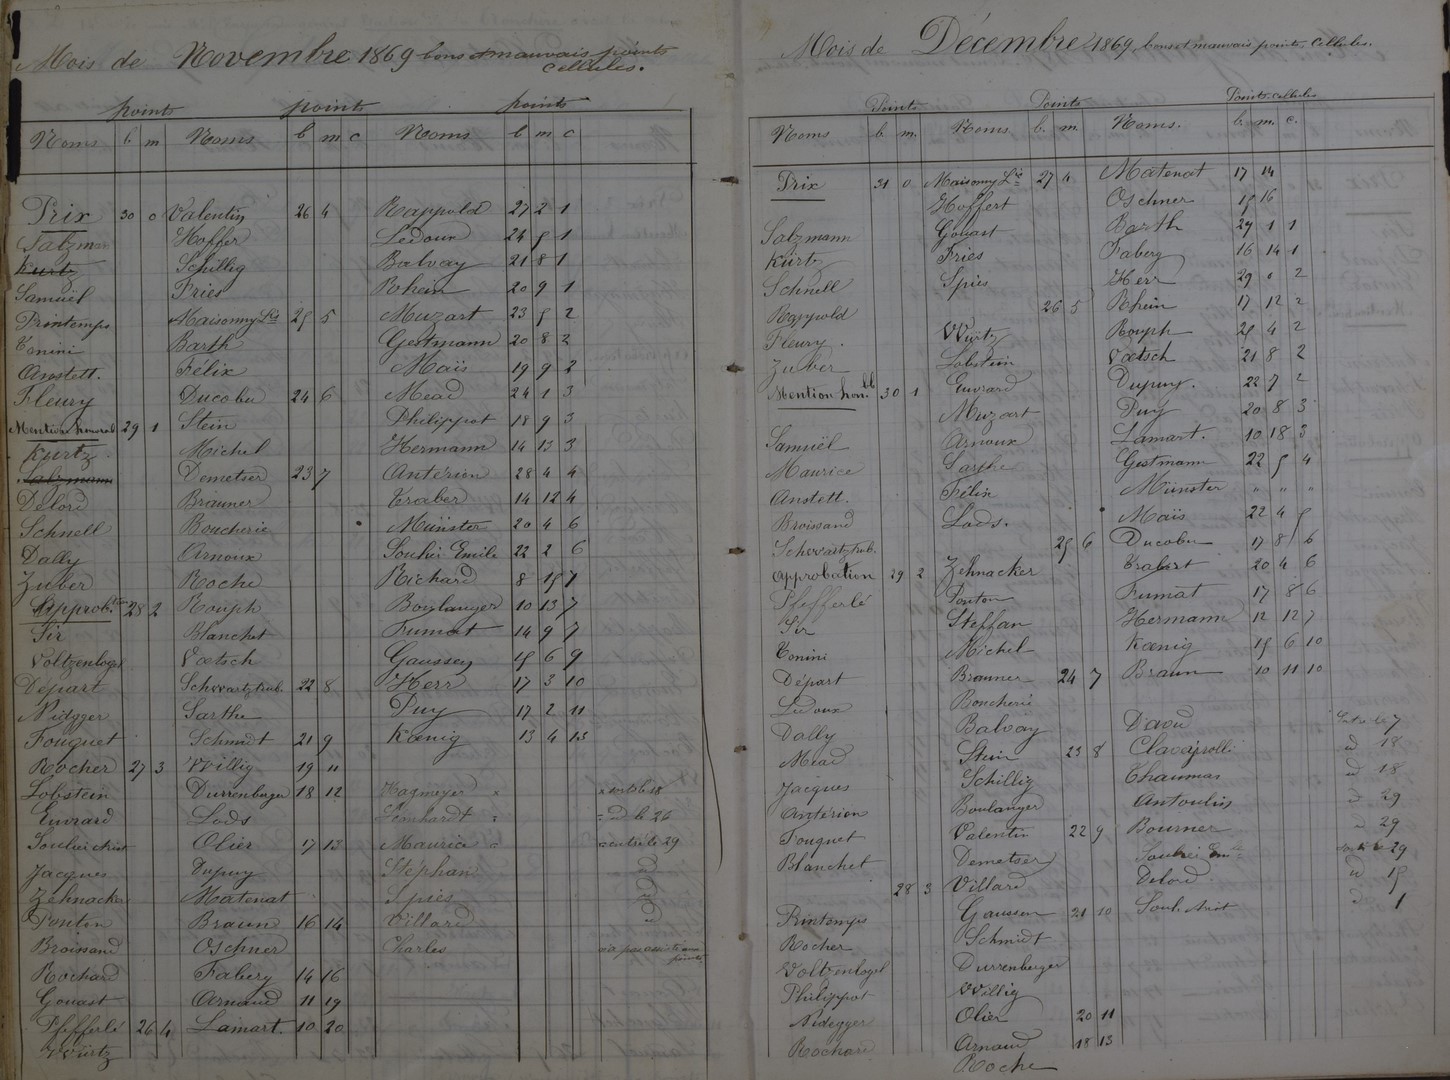 Mois de Novembre 1869 bons et mauvais points
cellules.
points points points
Noms b m Noms b m c Noms b m c
Prix 30 0 Valentin 26 4 Rappold 27 2 1
Salzman Hoffer Ledoux 24 5 1
Kurtz Schillig Balvay 21 8 1
Samuël Fries Rhein 20 9 1
Printemps Maisonny 25 5 Muzart 23 5 2
Tonini Barth Gestmann 20 8 2
Anstett. Félix Maïs 19 9 2
Fleury Ducobu 24 6 Mead 24 1 3
Mention honorab 29 1 Stein Philippot 18 9 3
Kurtz Michel Hermann 14 13 3
Salzmann Demetser 23 7 Antérion 28 4 4
Delord Brauner Traber 14 12 4
Schnell Boucherie Münster 20 4 6
Dally Arnoux Soulié Emile 22 2 6
Zuber Roche Richard 8 15 7
Approb.tion 28 2 Rouph Boulanger 10 13 7
Sir Blanchet Fumat 14 9 7
Voltzenlogel Voetsch Gaussen 15 6 9
Départ Schwartztrub. 22 8 Herr 17 3 10
Nidgger Sarthe Puy 17 2 11
Fouquet Schmidt 21 9 Kœnig 13 4 13
Rocher 27 3 Willig 19 11
Lobstein Durrenberger 18 12 Hagmeyer x
Euvrard Lods
Olier 17 13 Maurice entré le 29
Jacques Dupuy Stéphan
Zehnacker Matenat Spies
Ponton Braun 16 14 Villard
Broissand Oschner Charles
Rochard Fabery 14 16
Gouast Arnaud 11 19
Pfefferlé 26 4 Lamart. 10 20
Würtz
Mois de Décembre 1869, bons et mauvais points, Cellules.
Points Points Points cellules
Noms b. m. Noms b. m. Noms. b. m. c.
Prix 31 0 Maisonny 27 4 Matenat 17 14
Hoffert Oschner 15 16
Salzmann Gouast Barth 29 1 1
Kürtz Fries Fabery 16 14 1
Schnell Spies Herr 29 0 2
Rappold 26 5 Rhein 17 12 2
Fleury. Würtz Rouph 25 4 2
Zuber Lobstein Voetsch 21 8 2
Mention hon.ble 30 1 Euvrard Dupuy. 22 7 2
Muzart Puy 20 8 3
Samuël Arnoux Lamart. 10 18 3
Maurice Sarthe Gestmann 22 5 4
Anstett. Félix Münster " " "
Broissand Lods. Maïs 22 4 5
Schwartztrub. 25 6 Ducobu 17 8 6
Approbation 29 2 Zehnacker Trabert 20 4 6
Pfefferlé Ponton Fumat 17 8 6
Sir Steffan Hermann 12 12 7
Tonini Michel Kœnig 15 6 10
Départ Brauner 24 7 Braun 10 11 10
Ledoux Boucherie
Dally Balvay Daoud 7
Mead Stein 23 8 id 18
Jacques Schillig Thaumas id 18
Antérion Boulanger Antoulin 29
Fouquet Valentin 22 9 Bourner 29
Blanchet Demetser Soulié 29
28 3 Villard Delord id 15
Printemps Gaussen 21 10 1
Rocher Schmidt
Voltzenlogel Durrenberger
Philippot Willig
Nidegger Olier 20 11
Rochard Arnaud 18 13
Roche